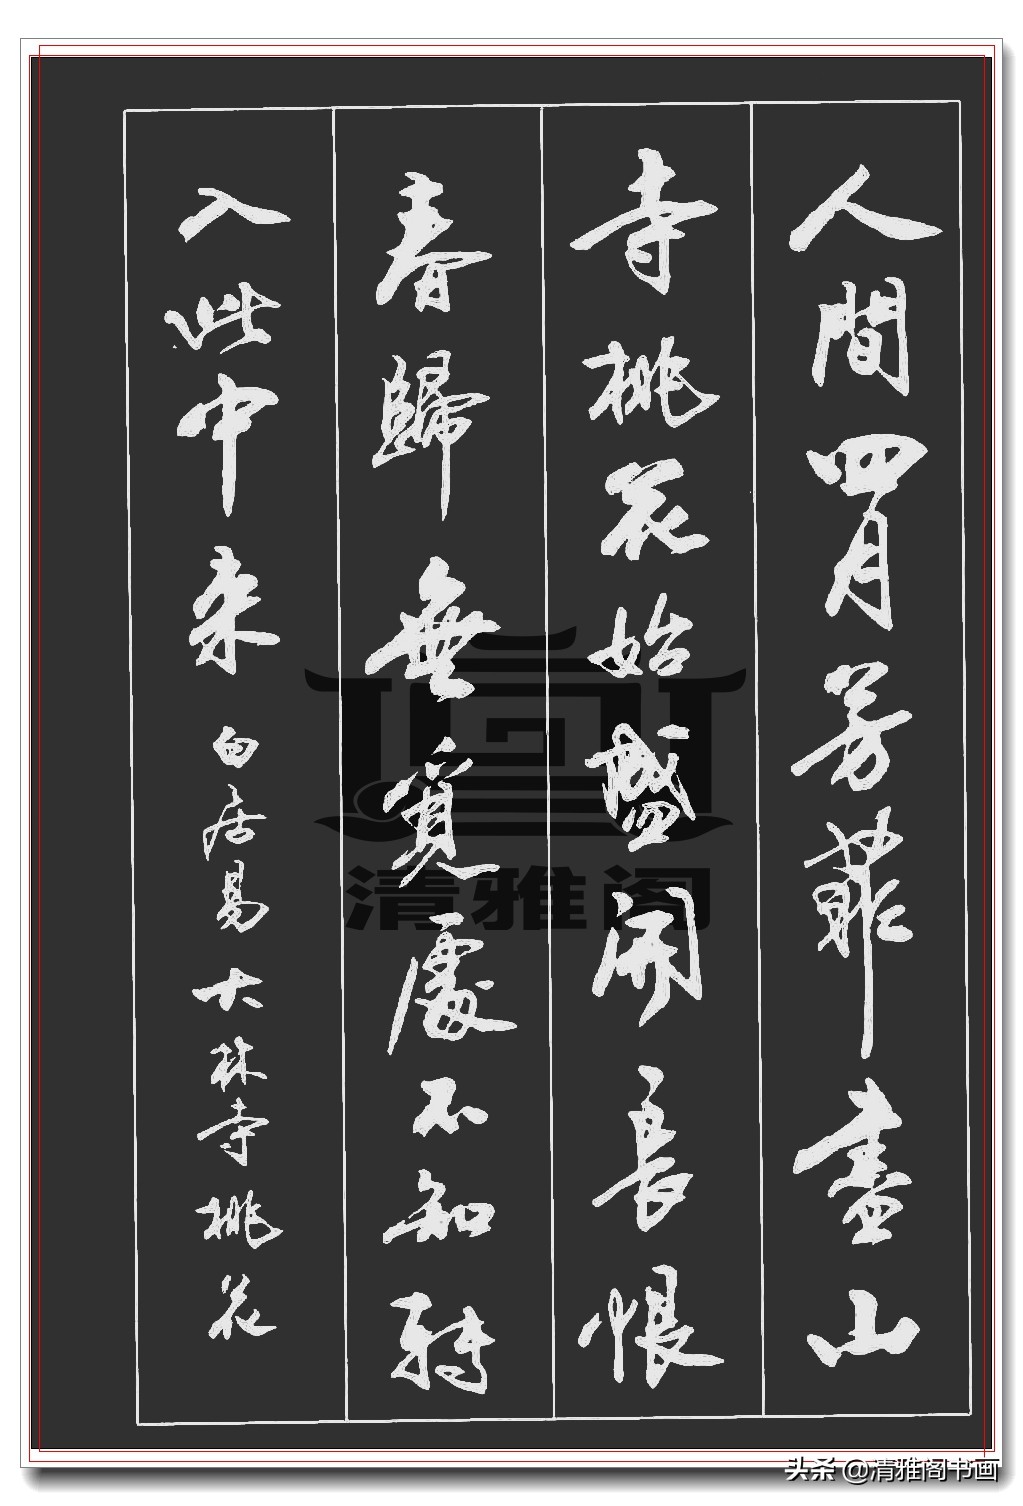 人間四月芳菲盡山
寺桃花始盛開長恨
春歸無覓處不知轉
入此中来
白居易 大林寺桃花
清雅阁
头条 @清雅阁书画